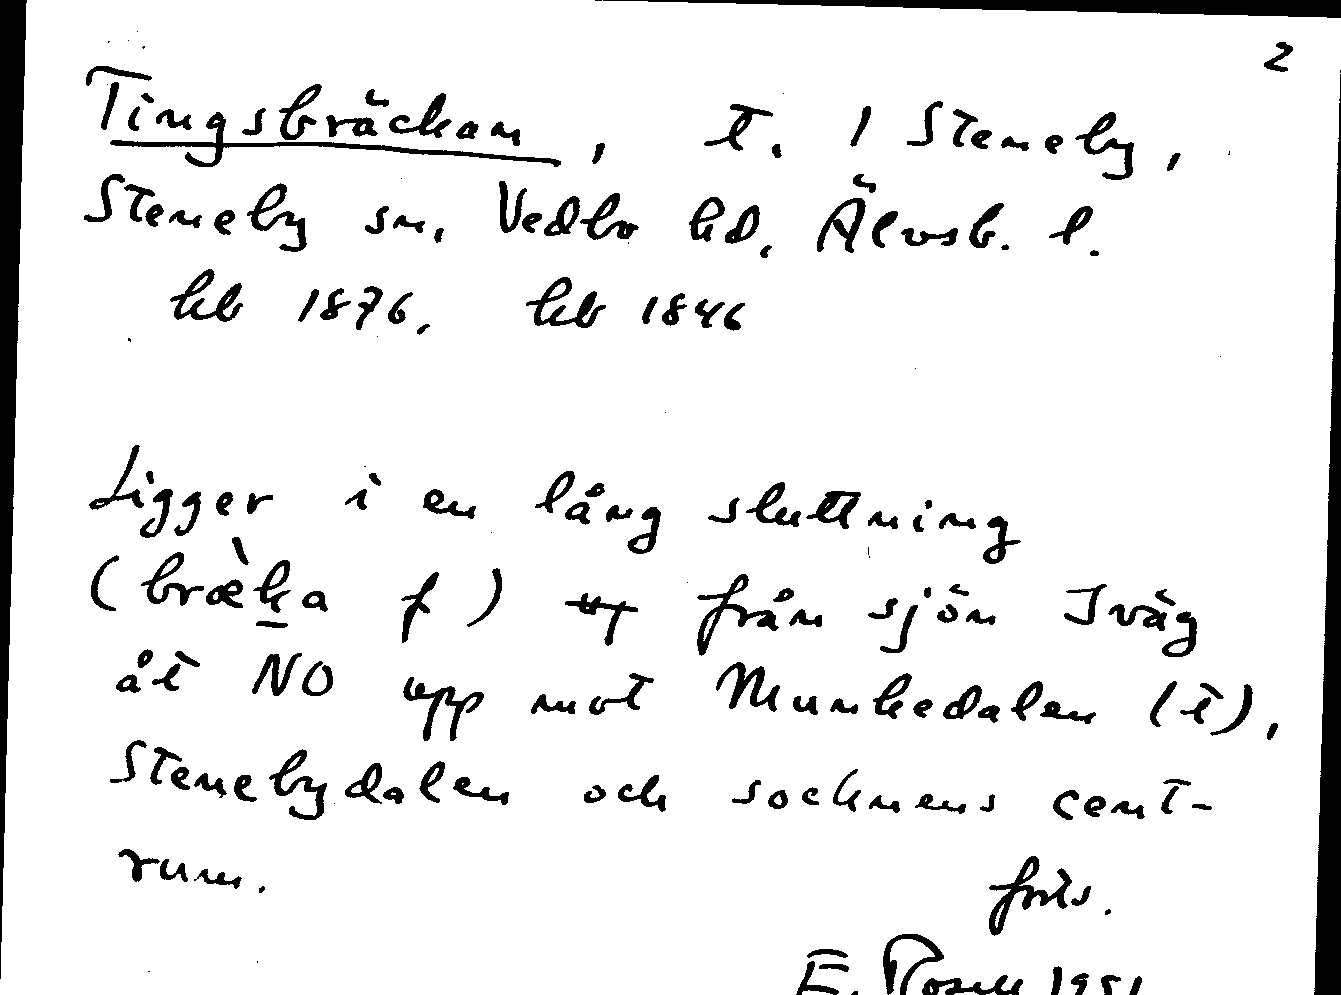 2
Tingsbräckan, t. 1 Steneby,
Steneby sn. Vedbo hd. Älvsb. l.
hb 1876, hb 1846
Ligger i en lång sluttning
(bræ̀ka f) från sjön Iväg
åt NO upp mot Munkedalen (t),
Stenebydalen och socknens cent-
rum.
forts.
E. Rosell 1951